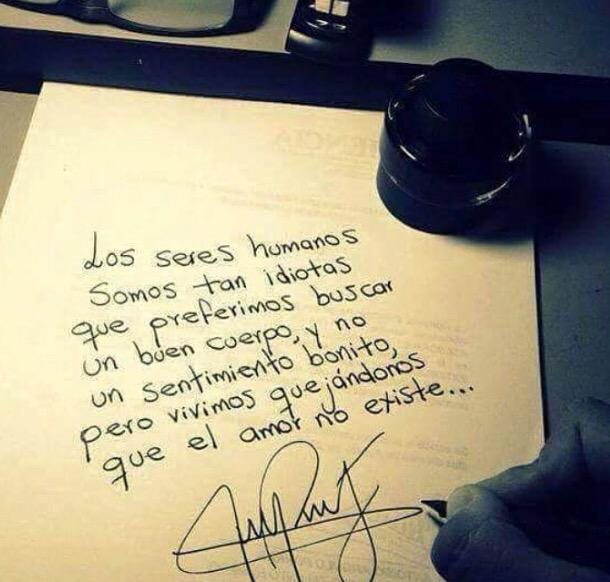 Los seres humanos
Somos tan idiotas
que preferimos buscar
un buen cuerpo, y no
un sentimiento bonito,
pero vivimos quejándonos
que el amor no existe...